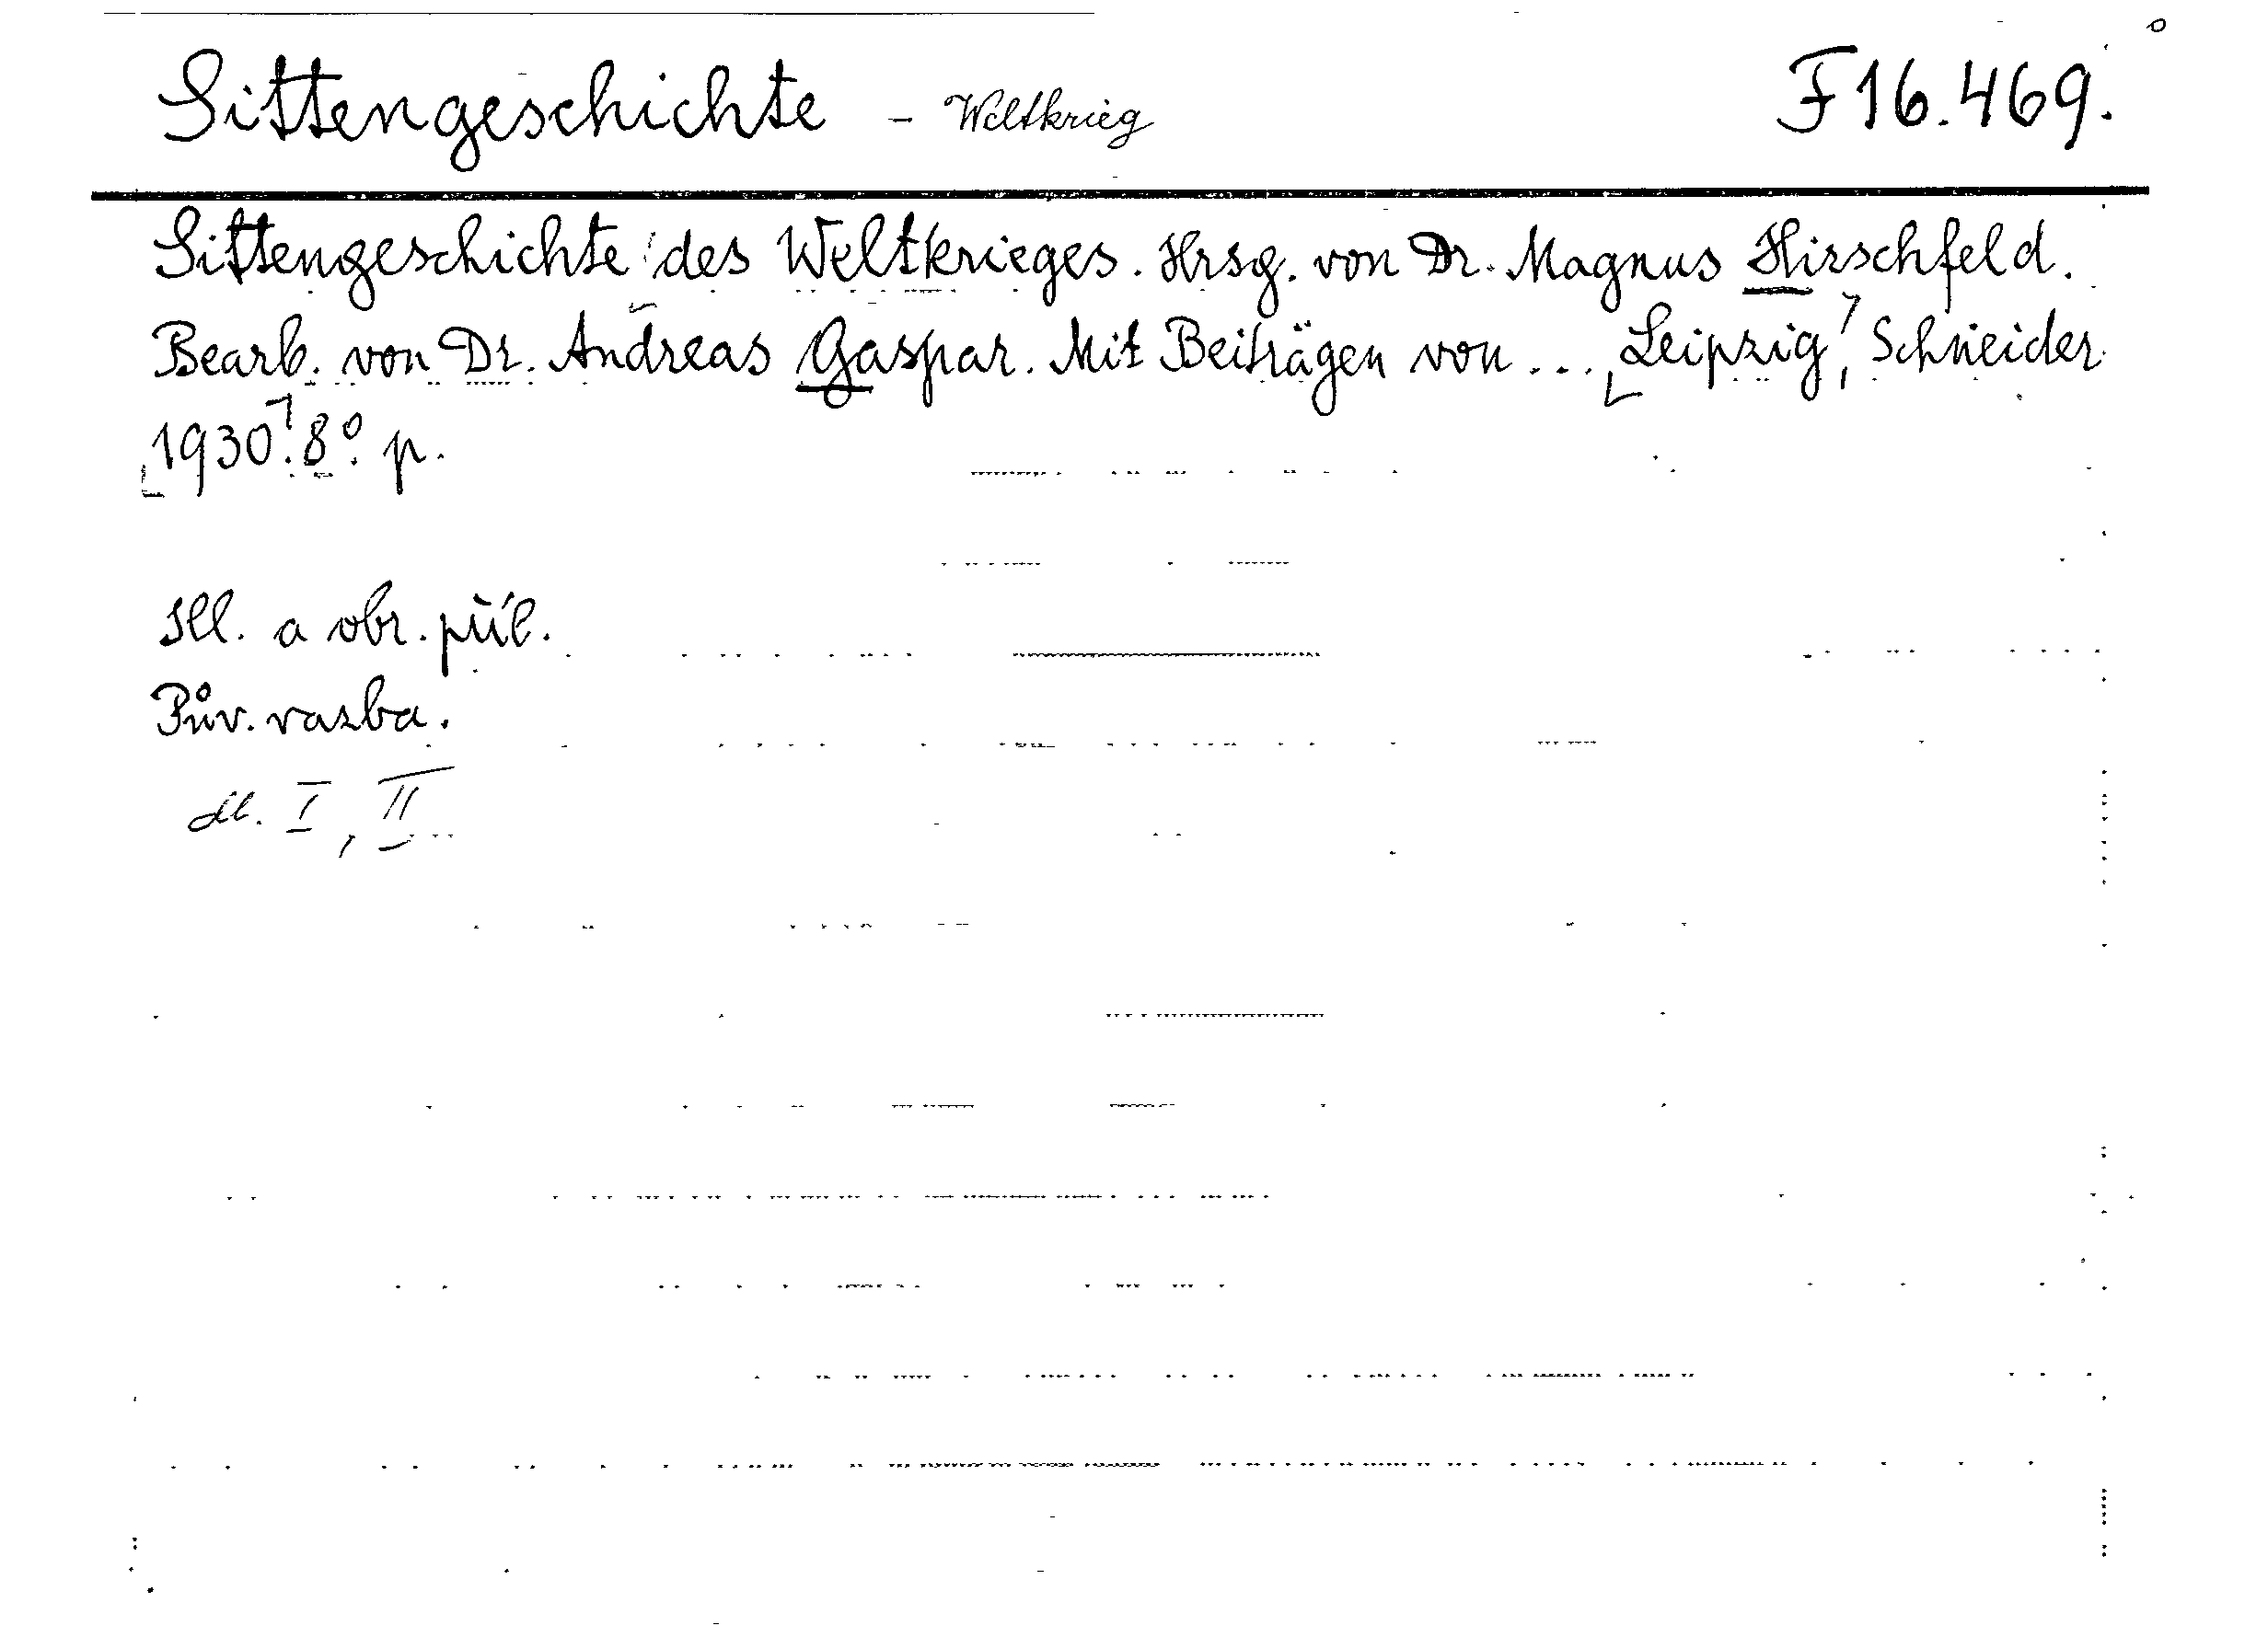 Sittengeschichte - Weltkrieg F 16.469.
Sittengeschichte des Weltkrieges. Hrsg. von Dr. Magnus Hirschfeld.
Bearb. von Dr. Andreas Gaspar. Mit Beiträgen von... [Leipzig], Schneider
[1930]. 8°. p.
Ill. a obr. příl.
Pův. vazba.
dl. I, II